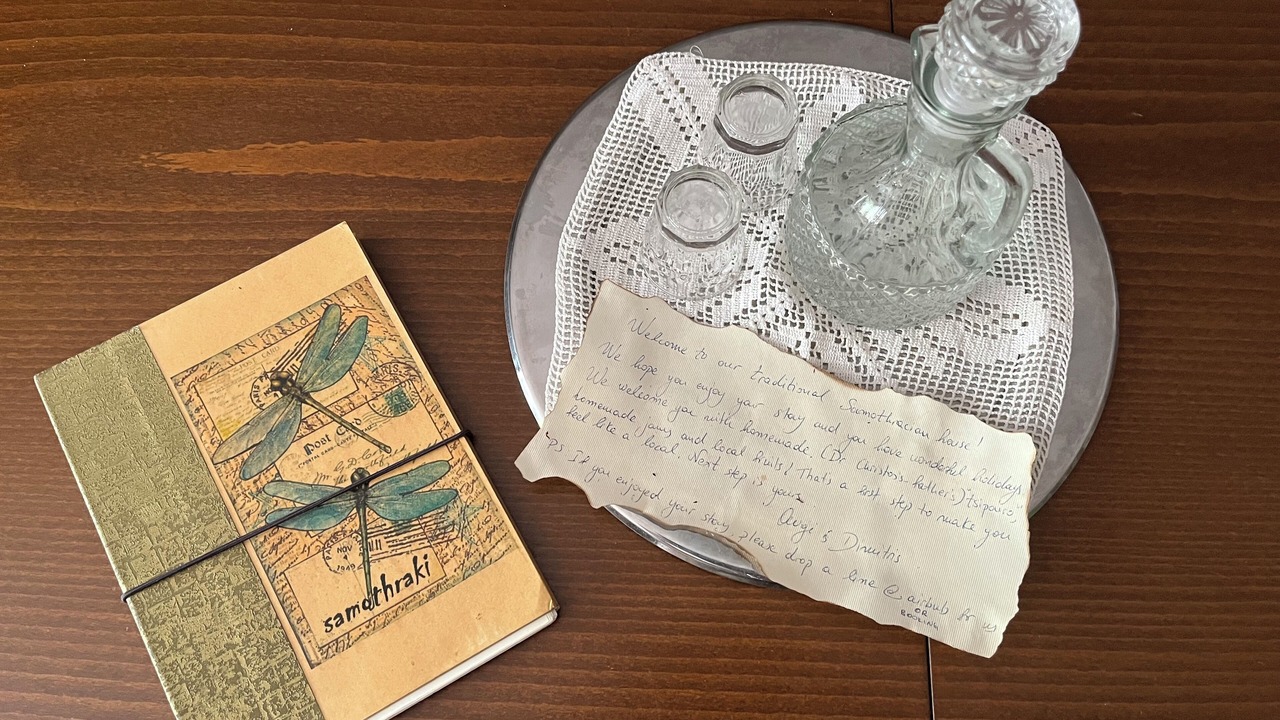 Post Card
NOV
1949
samothraki
Welcome to our traditional Samothracian house!
We hope you enjoy your stay and you have wonderful holidays
We welcome you with homemade (Dr. Christos-father's) tsipouro,
homemade jams and local fruits! Thats a first step to make you
feel like a local. Next step is yours
Avgi & Dimitris
PS If you enjoyed your stay, please drop a line @ airbnb for us
OR
BOOKING